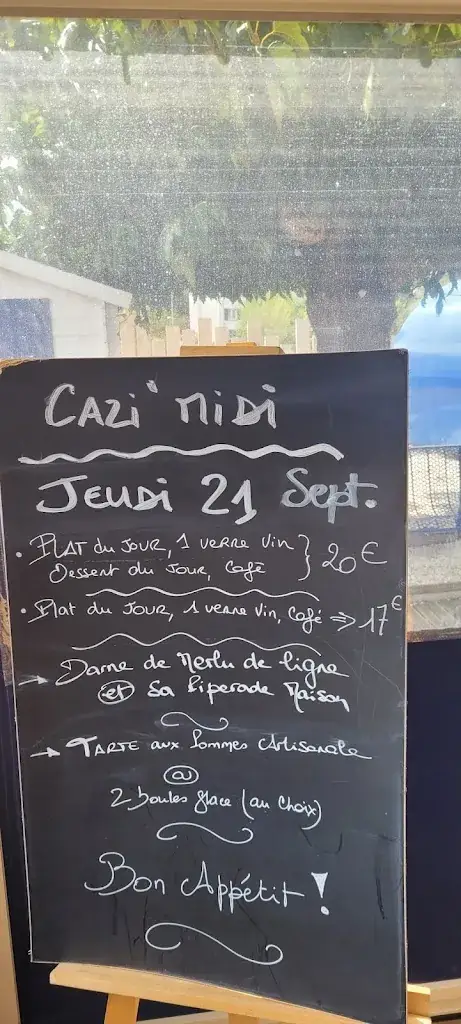 CAZI'MIDI
JEUDI 21 Sept.
• PLAT du JOUR, 1 verre Vin } 20€
Dessert du Jour, Café
• Plat du JOUR, 1 verre Vin, Café => 17€
→ Darne de Merlu de ligne
et Sa Piperade Maison
→ TARTE aux Pommes Artisanale
@
2 boules glace (au choix)
Bon Appétit !